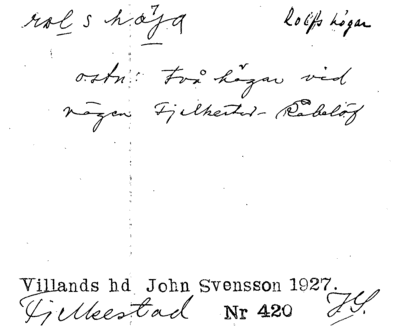 rol s höja Rolfs högar
ostn: två högar vid
vägen Fjelkestad - Råbelöf
Villands hd John Svensson 1927.
Fjelkestad Nr 420 J.S.